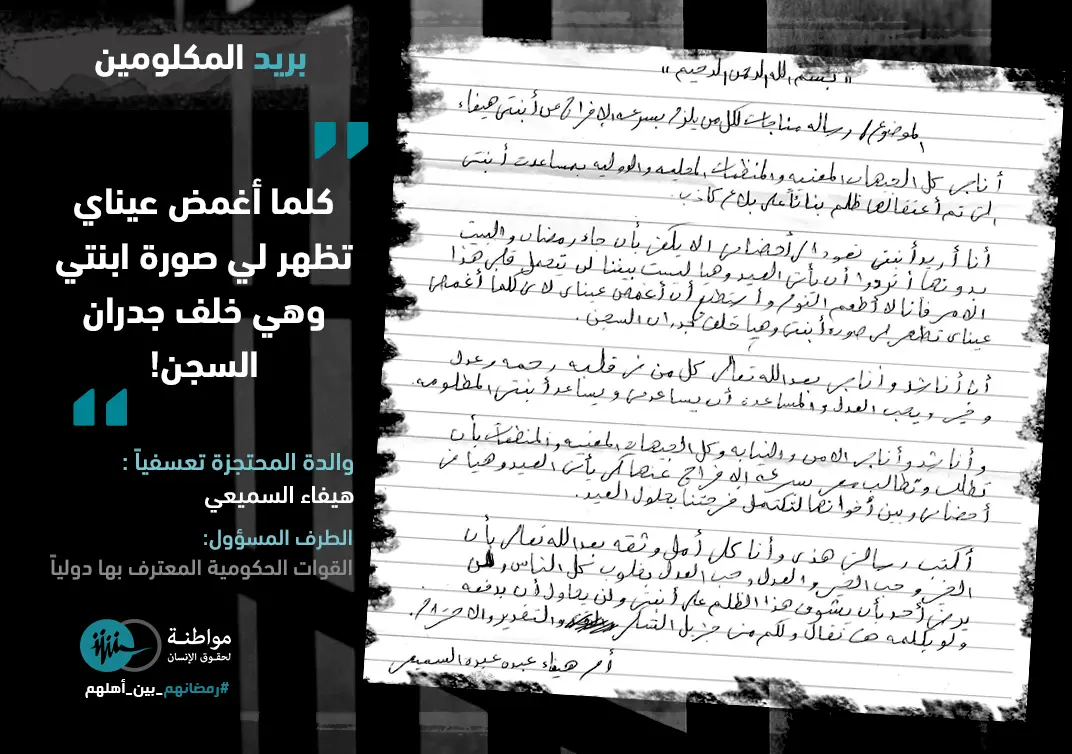 بريد المكلومين
كلما أغمض عيناي
تظهر لي صورة ابنتي
وهي خلف جدران
السجن!
والدة المحتجزة تعسفياً :
هيفاء السميعي
الطرف المسؤول:
القوات الحكومية المعترف بها دولياً
مواطنة
لحقوق الإنسان
#رمضانهم_بين_أهلهم
" بسم الله الرحمن الرحيم "
الموضوع / رساله مناجات لكل من يلزم بسرعه الإفراج عن أبنتي هيفاء
أناجي كل الجهات المعنيه والمنظمات المحليه والدوليه بمساعدت أبنتي
التي تم أعتقالها ظلم بنائاً على بلاغ كاذب.
أنا أريد أبنتي تعود الى أحضاني الا يكفي بأن جاء رمضان والبيت
بدونها أتريدوا أن يأتي العيد وهيا ليست بيننا لن تتحمل قلبي هذا
الامر فأنا لا أطعم النوم وأستطيع أن أغمض عيناي لاني كلما أغمض
عيناي تظهر لي صورة أبنتي وهيا خلف جدران السجن.
أن أناشد وأناجي بعد الله تعالى كل من في قلبه رحمه وعدل
وخير ويحب العدل والمساعدة أن يساعدني ويساعد أبنتي المظلومه.
وأناشد وأناجي الامن والنيابه وكل الجهات المعنيه والمنظمات بأن
تطلب وتطالب معي بسرعه الافراج عنها كي يأتي العيد وهيا في
أحضاني وبين أخوانها لتكتمل فرحتنا بحلول العيد.
أكتب رسالتي هذي وأنا كلي أمل وثقه بعد الله تعالى بأن
الخير وحب الخير والعدل وحب العدل بقلوب كل الناس ولن
يرضى أحد بأن يشوف هذا الظلم على أبنتي ولن يحاول أن يدفعه
ولو بكلمه حق تقال ولكم مني جزيل الشكر والتقدير والاحترام.
أم هيفاء عبده عبده السميعي